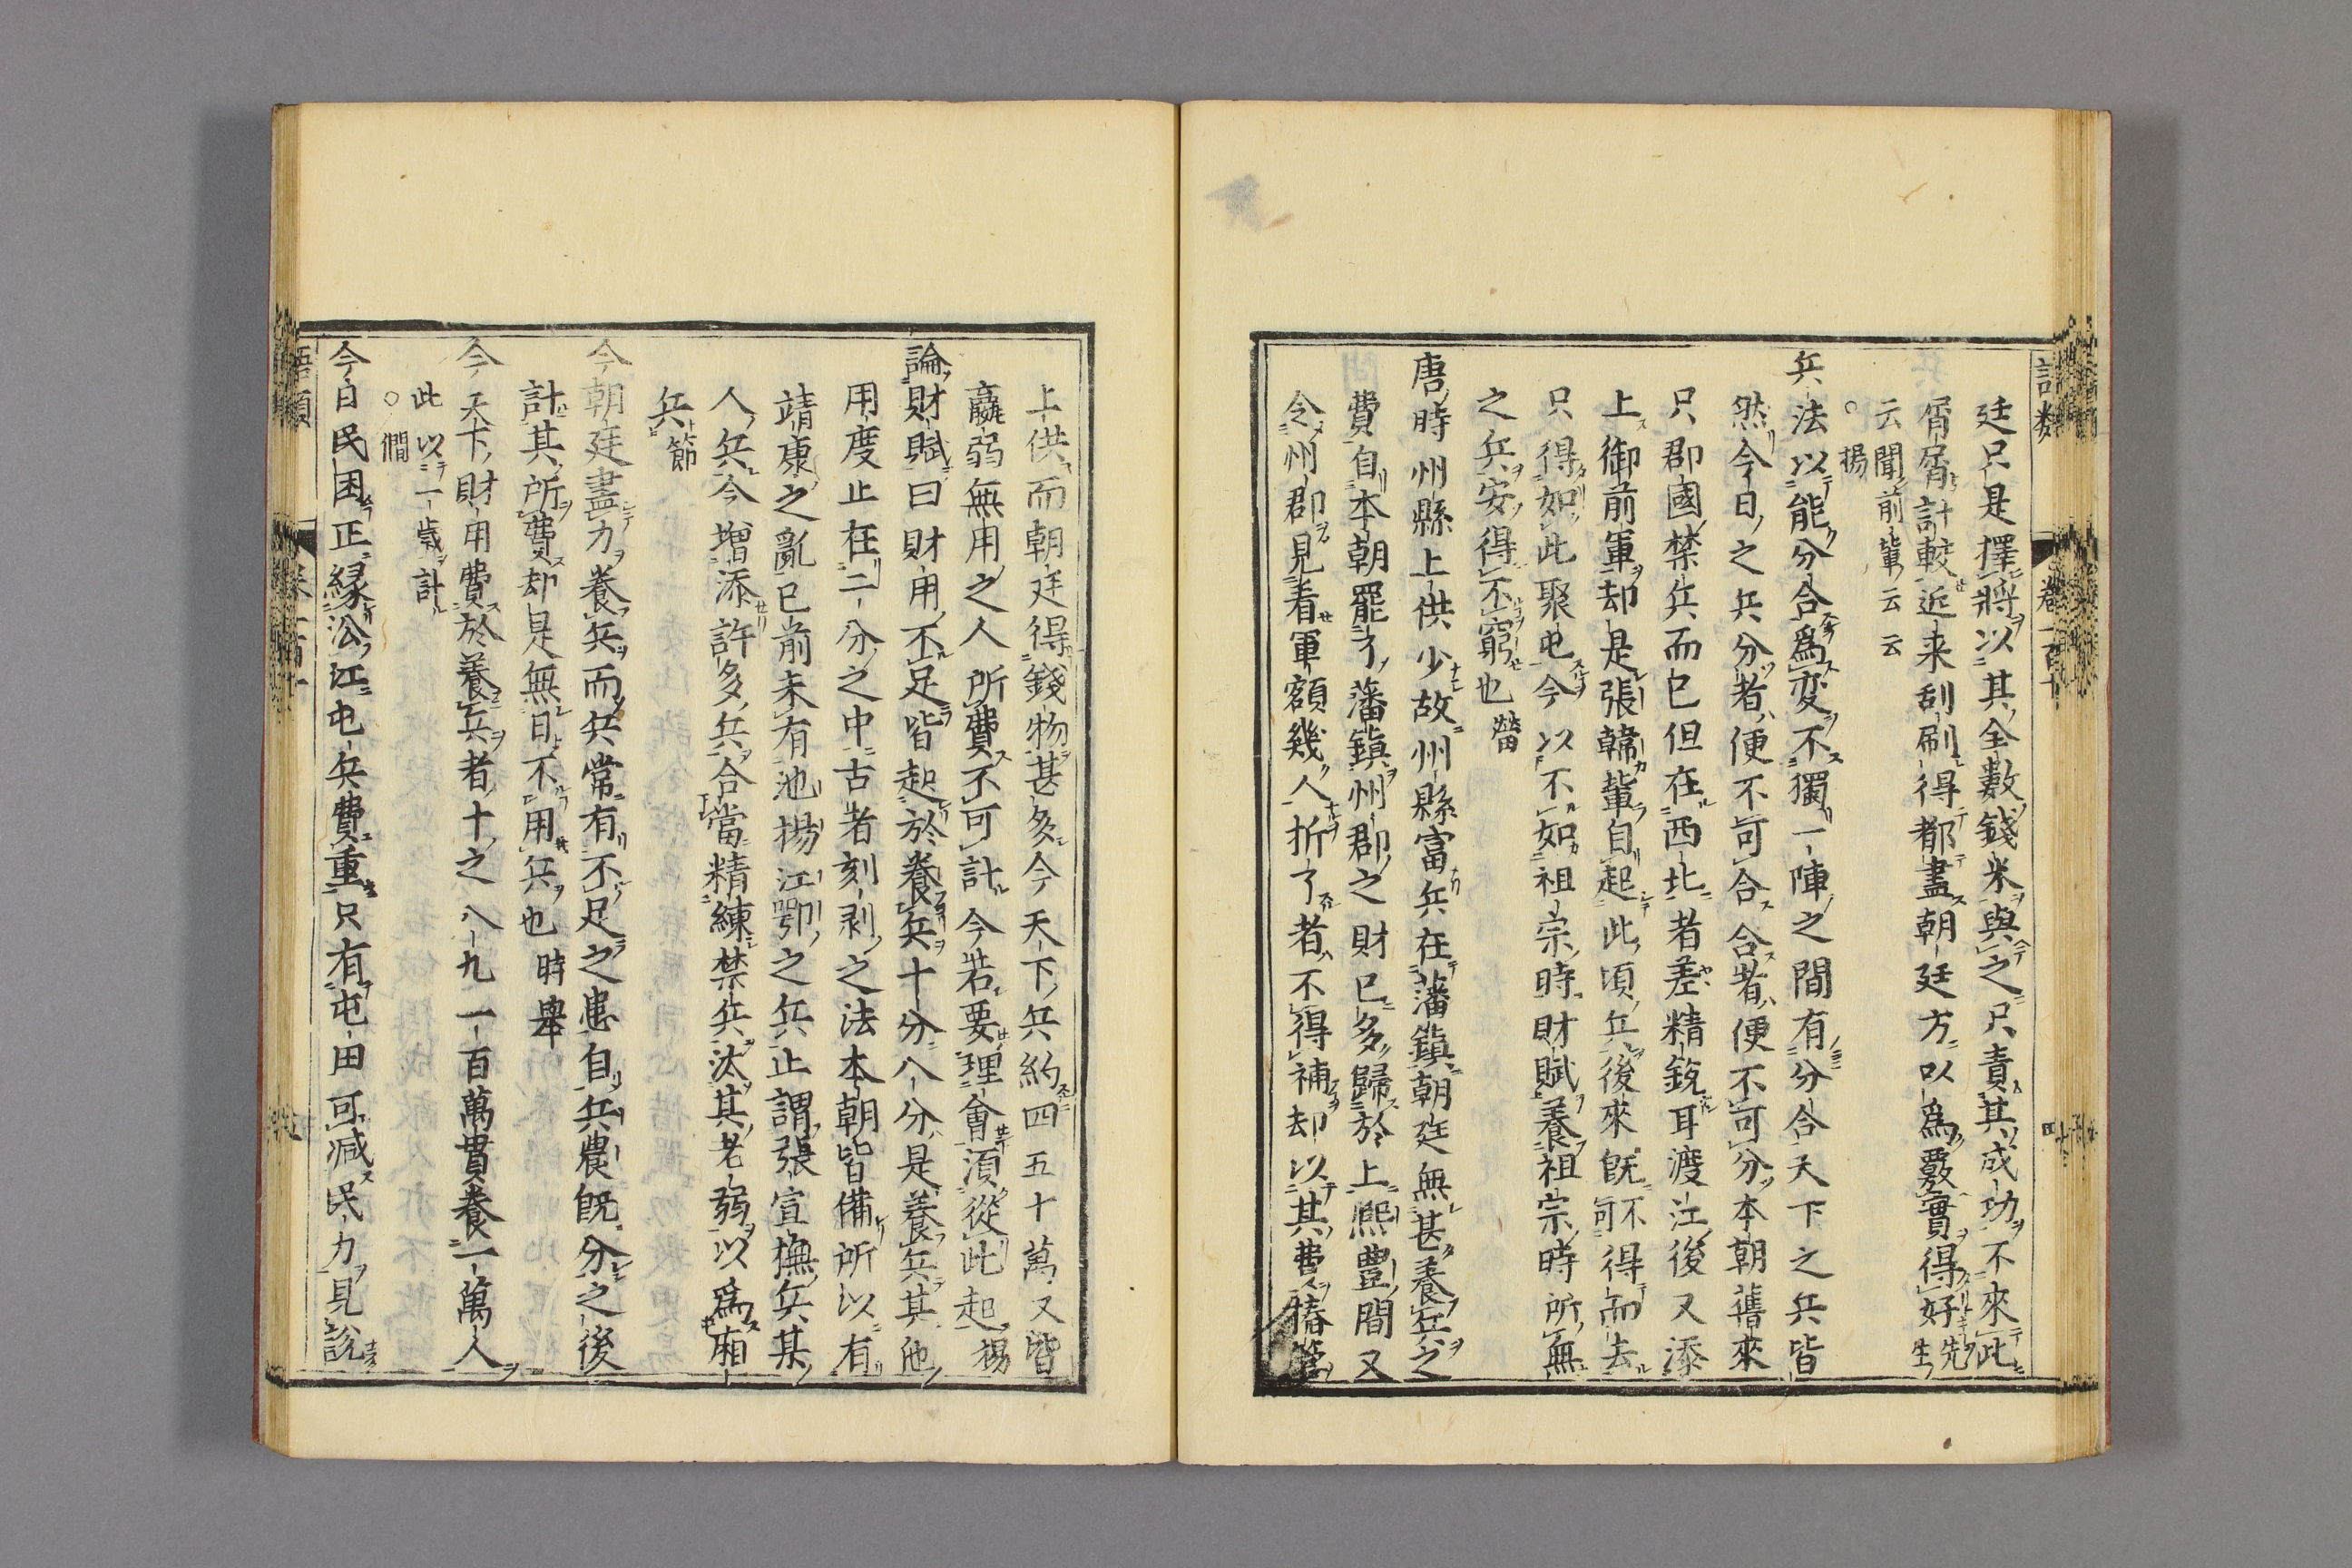 語類 卷一百十 四
廷只是擇將以其全數錢米與之只責其成功不來此
屑屑計較近来刮刷得都盡朝廷方以為覈實得好先生
云聞前輩云云
○揚
兵法以能分合為変不獨一陣之間有分合天下之兵皆
然今日之兵分者便不可合合者便不可分本朝舊來
只郡國禁兵而已但在西北者差精銳耳渡江後又添
上御前軍却是張韓輩自起此項兵後來既不可得而去
只得如此聚屯今以不如祖宗時財賦養祖宗時所無
之兵安得不窮也㽦
唐時州縣上供少故州縣富兵在藩鎮朝廷無甚養兵之
費自本朝罷了藩鎮州郡之財已多歸於上熙豊間又
令州郡見看軍額幾人折了者不得補却以其費椿管
上供而朝廷得錢物甚多今天下兵約四五十萬又皆
羸弱無用之人所費不可計今若要理會須從此起揚
論財賦曰財用不足皆起於養兵十分八分是養兵其他
用度止在二分之中古者刻剥之法本朝皆備所以有
靖康之亂已前未有池揚江鄂之兵止謂張宣撫兵某
人兵今増添許多兵合當精練禁兵汰其老弱以為廂
兵節
今朝廷盡力養兵而兵常有不足之患自兵農既分之後
計其所費却是無日不用兵也時舉
今天下財用費於養兵者十之八九一百萬貫養一萬人
此以一歳計
○僩
今日民困正縁沿江屯兵費重只有屯田可減民力見説
語類